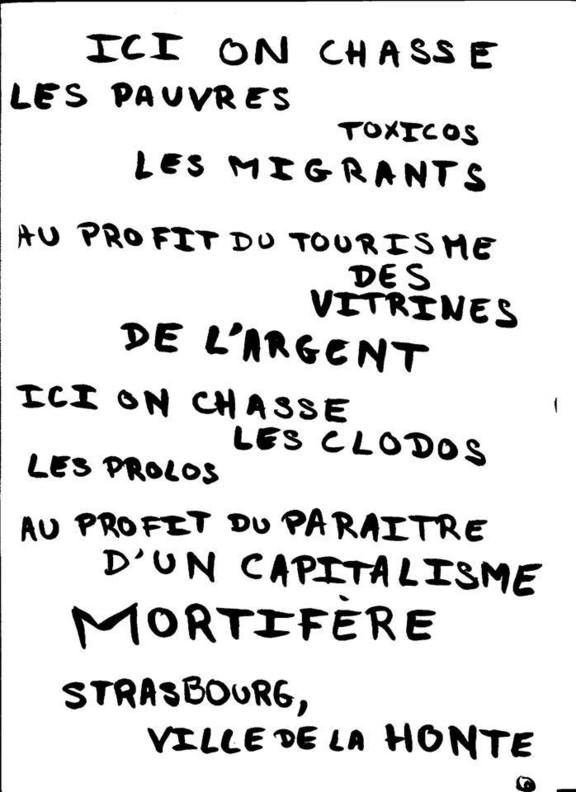 ICI ON CHASSE
LES PAUVRES
TOXICOS
LES MIGRANTS
AU PROFIT DU TOURISME
DES
VITRINES
DE L'ARGENT
ICI ON CHASSE
LES CLODOS
LES PROLOS
AU PROFIT DU PARAITRE
D'UN CAPITALISME
MORTIFÈRE
STRASBOURG,
VILLE DE LA HONTE